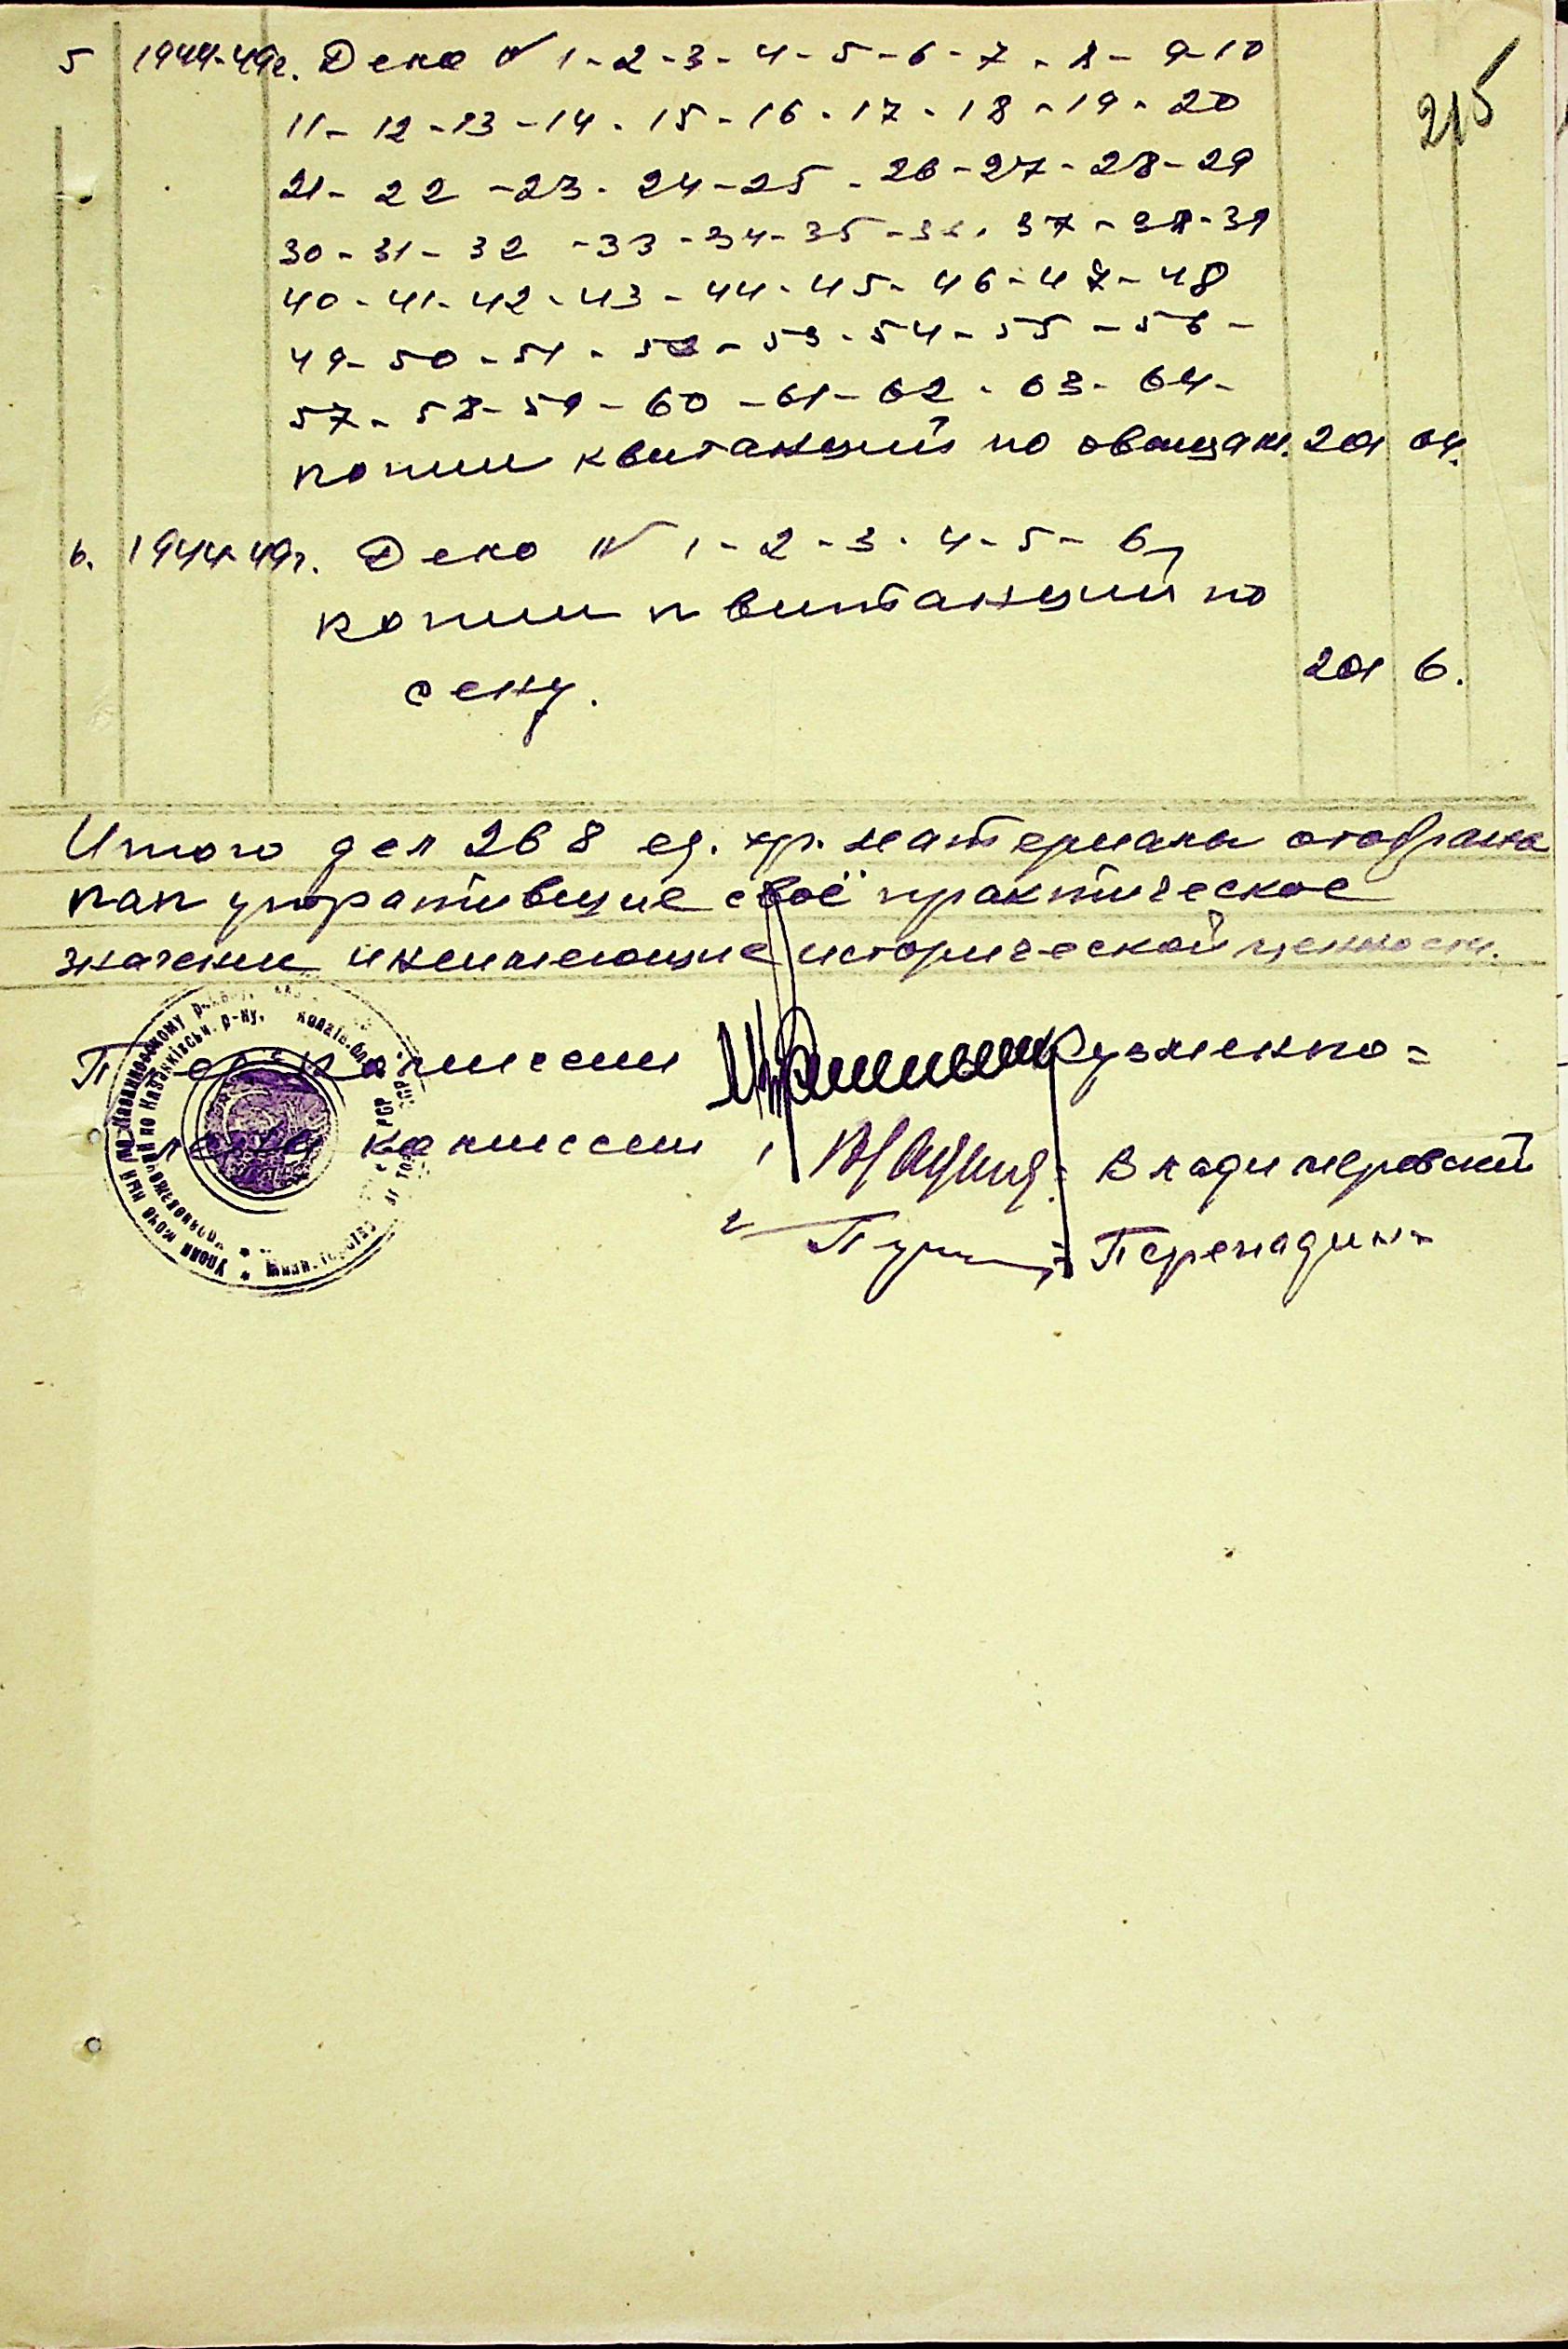 215
5 1944-49г. Дело № 1-2-3-4-5-6-7-8-9-10
11-12-13-14-15-16-17-18-19-20
21-22-23-24-25-26-27-28-29
30-31-32-33-34-35-36-37-38-39
40-41-42-43-44-45-46-47-48
49-50-51-52-53-54-55-56-
57-58-59-60-61-62-63-64-
копии квитанций по овощам. 201 64.
6. 1944-49г. Дело № 1-2-3-4-5-6,
копии квитанций по
сену. 201 6.
Итого дел 268 ед. хр. материалы отобраны
как утратившие своё практическое
значение и неимеющие исторической ценности.
комиссии Кузменко =
комиссии 1 Владимеровский
2